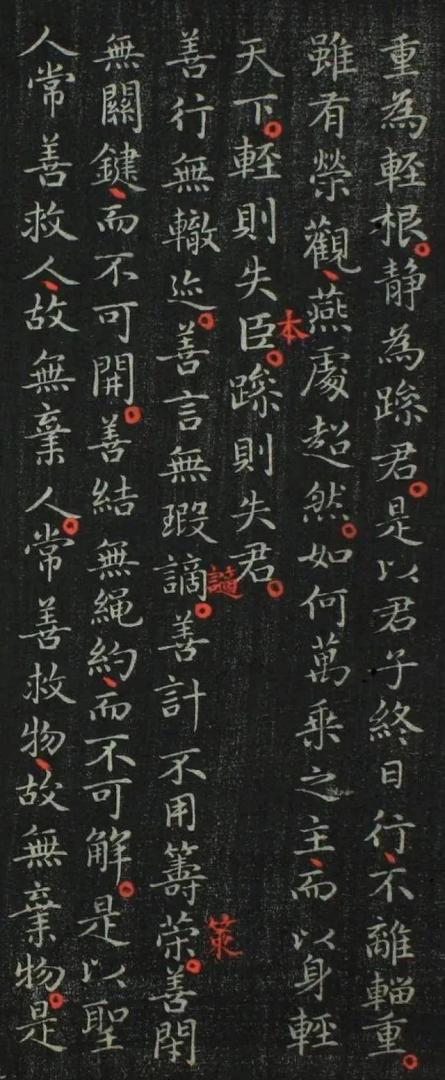 重為輊根。静為躁君。是以君子終日行、不離輜重。
雖有榮觀、燕處超然。如何萬乗之主、而以身輕
天下。輊則失臣。躁則失君。
本
善行無轍迹。善言無瑕謫。善計不用籌䇿。善閇
讁
策
無關鍵、而不可開。善結無繩約、而不可解。是以聖
人常善救人、故無棄人。常善救物、故無棄物。是